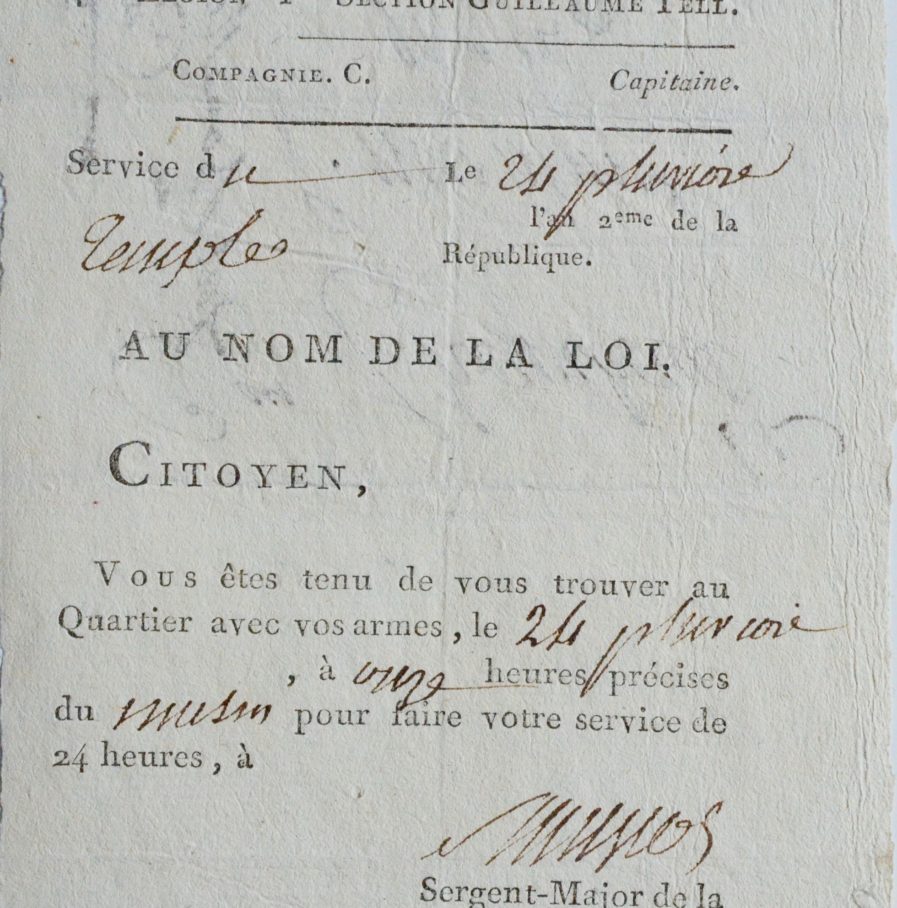 SECTION GUILLAUME TELL.
COMPAGNIE. C. Capitaine.
Service du Le 24 pluviôse
l'an 2eme de la
Temple République.
AU NOM DE LA LOI.
CITOYEN,
Vous êtes tenu de vous trouver au
Quartier avec vos armes, le 24 pluviose
, à onze heures précises
du matin pour faire votre service de
24 heures, à
Sergent-Major de la